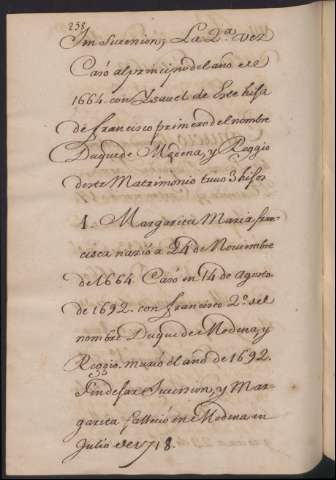 258
Sin Sucesion, y La 2ª. vez
Casó al principio del año de
1664. con Ysavel de Este hija
de francisco primero del nombre
Duque de Modena, y Reggio
de este Matrimonio tuvo 3 hijos
1. Margarita Maria fran-
cisca nazió a 24 de Noviembre
de 1664. Casó en 14 de Agosto
de 1692. con francisco 2º. del
nombre Duque de Modena, y
Reggio. murió el año de 1692.
Sin dejar Sucesion, y Mar-
garita fallecio en Modena en
Julio de 1718.